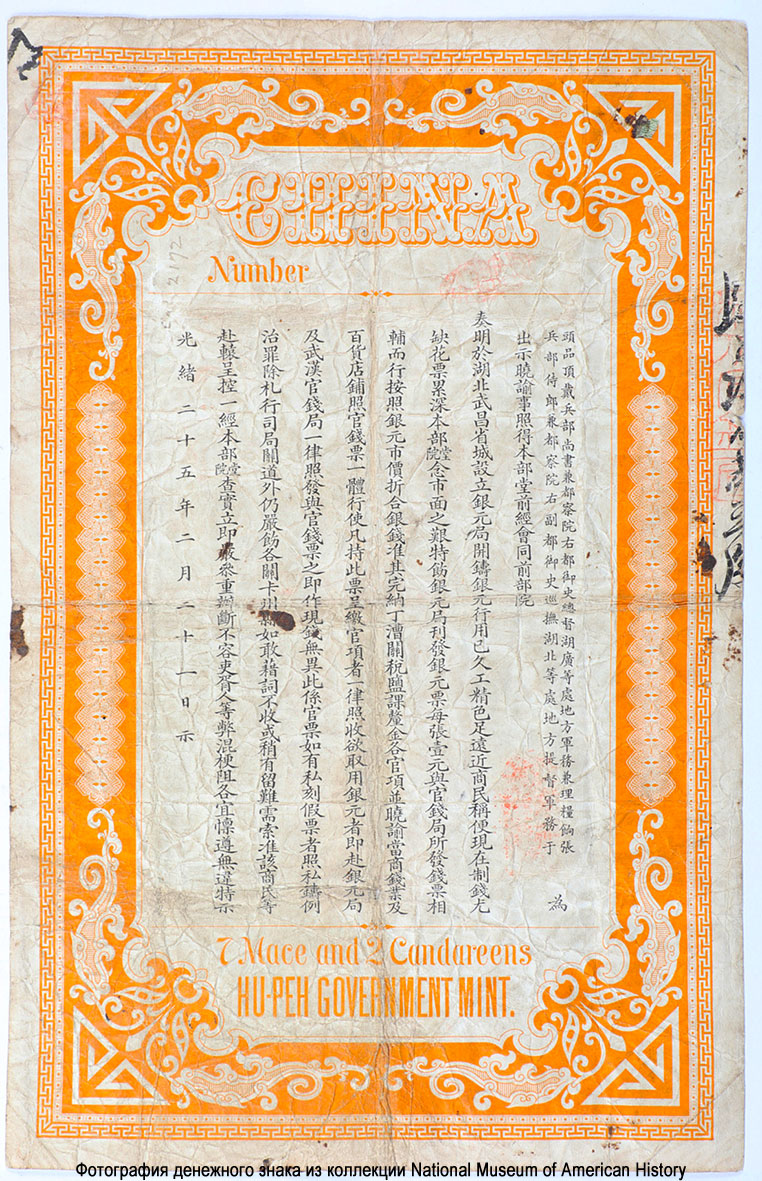 CHINA
Number
2172
頭品頂戴兵部尚書兼都察院右都御史總督湖廣等處地方軍務兼理糧餉張
兵部侍郎兼都察院右副都御史巡撫湖北等處地方提督軍務于
為
出示曉諭事照得本部堂前經會同前部院
奏明於湖北武昌省城設立銀元局開鑄銀元行用已久工精色足遠近商民稱便現在制錢尤
缺花票累深本部堂院念市面之艱特飭銀元局刊發銀元票每張壹元與官錢局所發錢票相
輔而行按照銀元市價折合銀錢准其完納丁漕關稅鹽課釐金各官項並曉諭當商錢業及
百貨店鋪照官錢票一體行使凡持此票呈繳官項者一律照收欲取用銀元者即赴銀元局
及武漢官錢局一律照發與官錢票之即作現錢無異此係官票如有私刻假票者照私鑄例
治罪除札行司局關道外仍嚴飭各關卡州縣如敢藉詞不收或稍有留難需索准該商民等
赴轅呈控一經本部堂院查實立即嚴參重辦斷不容吏胥人等弊混梗阻各宜懍遵無違特示
光緒二十五年二月二十一日示
7 Mace and 2 Candareens
HU-PEH GOVERNMENT MINT.
Фотография денежного знака из коллекции National Museum of American History